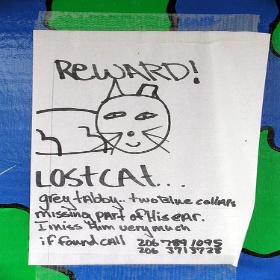 REWARD!
LOST CAT...
grey tabby.. two blue collars
missing part of His ear.
I miss Him very much
if found call 206 789 1095
206 3713728